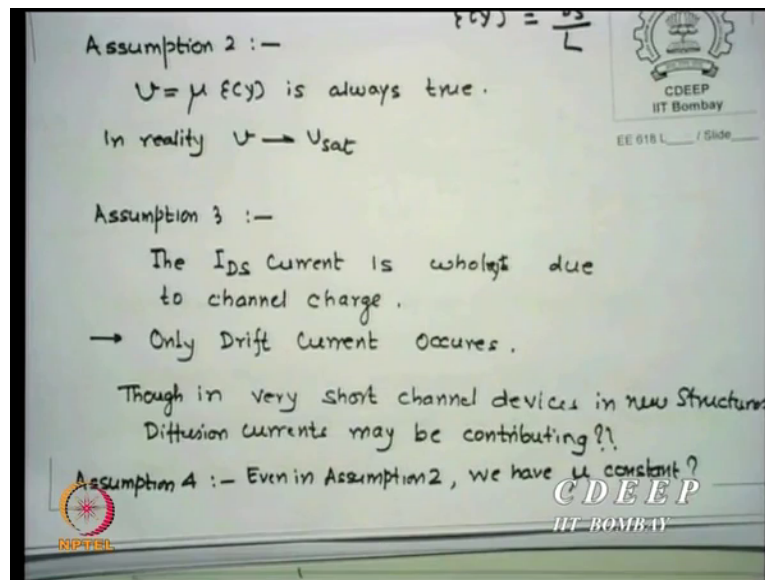 ξ(y) = V_DS / L
Assumption 2 :—
v = μ ξ(y) is always true.
In reality v → v_sat
Assumption 3 :—
The I_DS Current is wholly due
to channel charge.
→ Only Drift Current Occures.
Though in very short channel devices in new Structures
Diffusion currents may be contributing??
Assumption 4 :— Even in Assumption 2, we have μ constant?
CDEEP
IIT Bombay
EE 618 L____ / Slide____
NPTEL
CDEEP
IIT BOMBAY